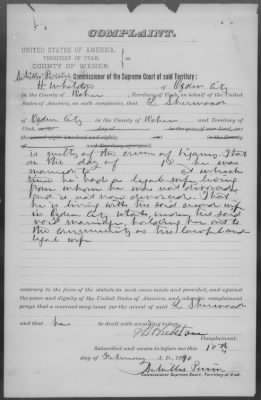 COMPLAINT.
UNITED STATES OF AMERICA,
TERRITORY OF UTAH,
COUNTY OF WEBER.
Commissioner of the Supreme Court of said Territory:
of Ogden City
in the County of Weber, Territory of Utah, on behalf of the United
States of America, on oath complains, that L Sherwood
of Ogden City in the County of Weber and Territory of
Utah, on the day of in the year of our Lord, one
thousand eight hundred and eighty at the County
and Territory aforesaid,
is guilty of the crime of bigamy. That
on the day of 18 he was
married to at which
time he had a legal wife living
from whom he was not divorced
and is not now divorced. That
he is living with his said second wife
in Ogden City Utah, under his said
void marriage, holding her out to
the community as his lawful and
legal wife
contrary to the form of the statute in such cases made and provided, and against
the peace and dignity of the United States of America, and wherefore complainant
prays that a warrant may issue for the arrest of said L Sherwood
and that he be dealt with according to law.
Complainant.
Subscribed and sworn to before me this 18th
day of February A.D. 1890
Commissioner Supreme Court, Territory of Utah.